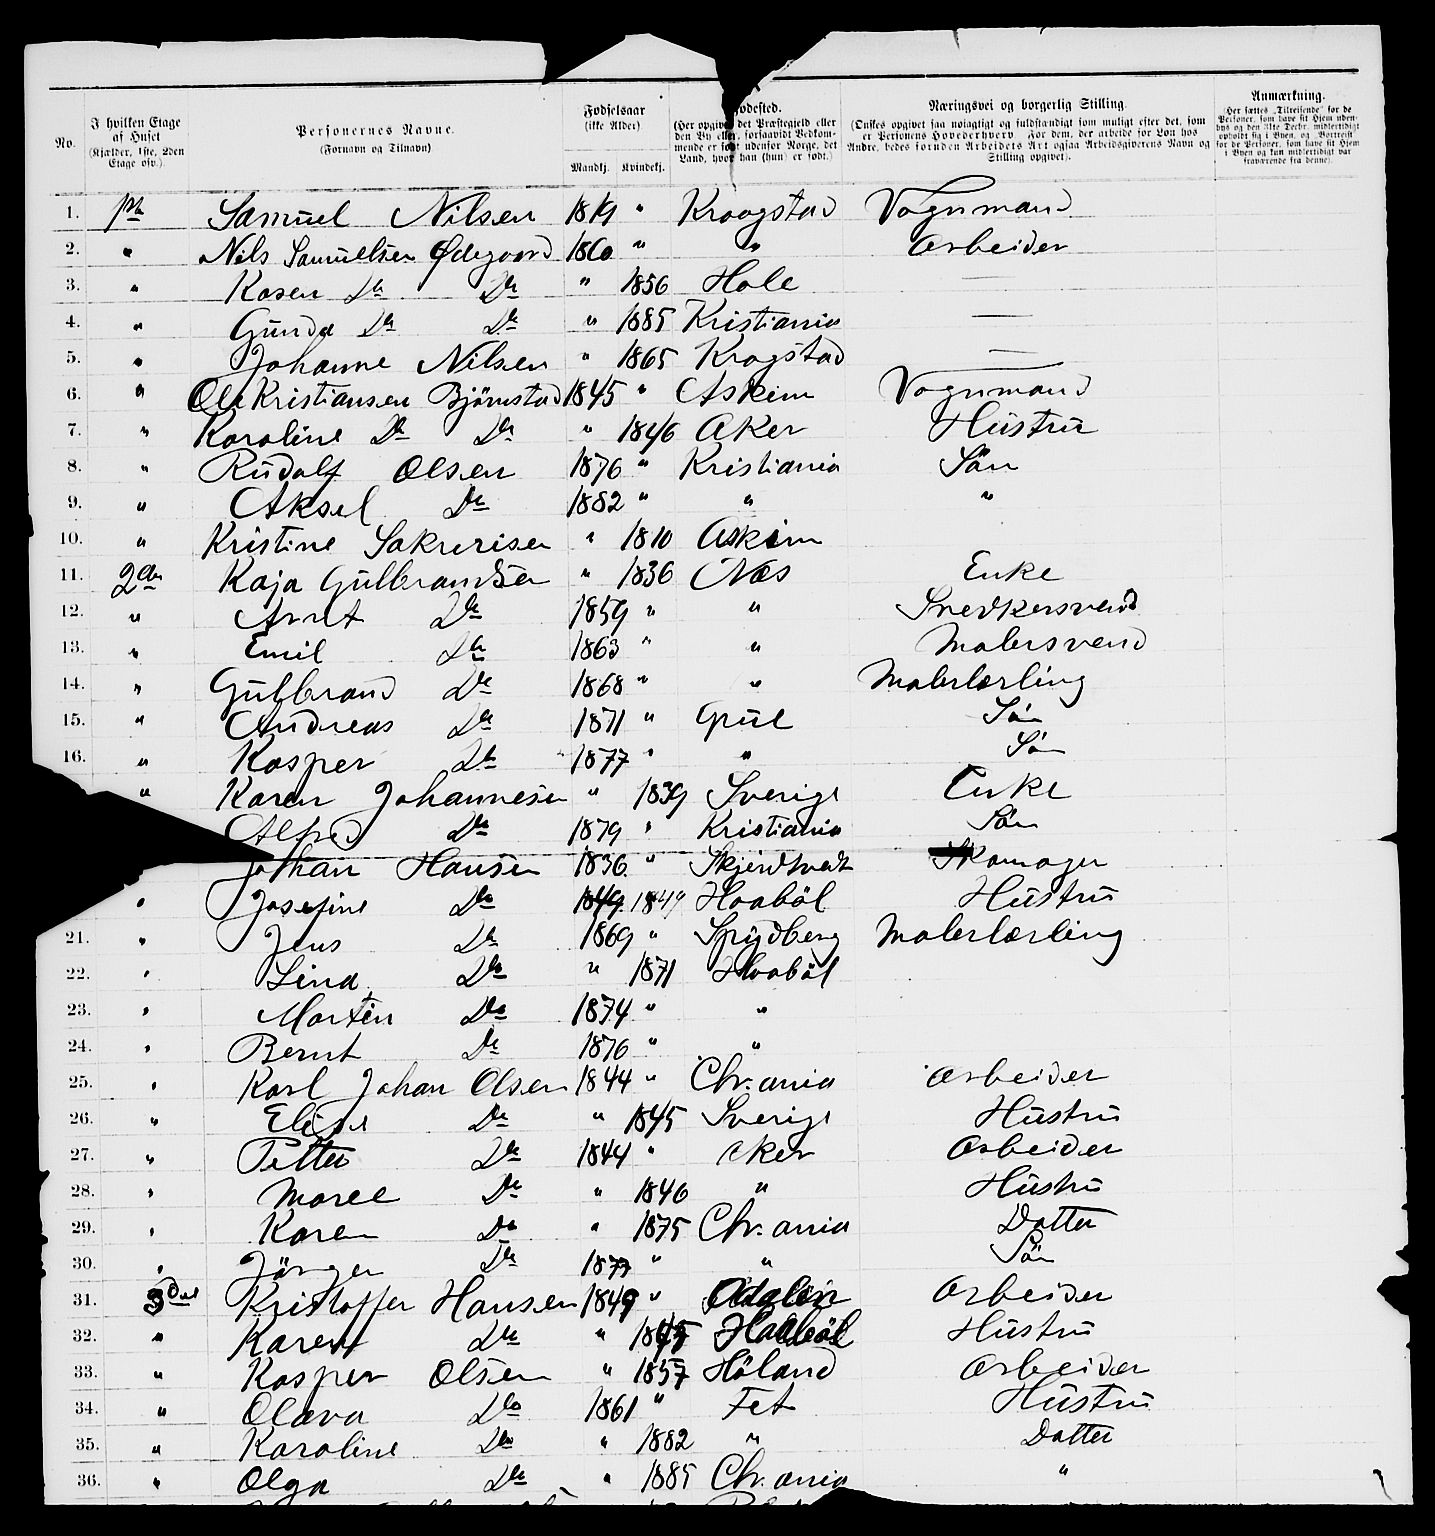 No. I hvilken Etage af Huset (Kjælder, 1ste, 2den Etage osv.). Personernes Navne. (Fornavn og Tilnavn) Fødselsaar (ikke Alder) Mandkj. Kvindekj. Fødested. (Her opgives det Præstegjeld eller den By eller, forsaavidt Vedkommende er født udenfor Norge, det Land, hvor han (hun) er født.) Næringsvei og borgerlig Stilling. (Ønskes opgivet saa nøiagtigt og fuldstændigt som muligt efter det, som er Personens Hovederhverv. For dem, der arbeide for Løn hos Andre, bedes foruden Arbeidets Art ogsaa Arbeidsgiverens Navn og Stilling opgivet). Anmærkning. (Her sættes „Tilreisende" for de Personer, som have sit Hjem udenbys og den 31te Decbr. midlertidigt opholdt sig i Byen, og „Bortreist" for de Personer, som have sit Hjem i Byen og kun midlertidigt var fraværende fra denne).
1. 1ste Samuel Nilsen 1819 " Kraagstad Vognmand
2. " Nils Samuelsen Ødegaard 1860 " " Arbeider
3. " Karen Do Do " 1856 Hole —
4. " Gunda Do Do " 1885 Kristiania —
5. " Johanne Nilsen " 1865 Krogstad —
6. " Ole Kristiansen Bjørnstad 1845 " Askim Vognmand
7. " Karoline Do Do " 1846 Aker Hustru
8. " Rudolf Olsen 1876 " Kristiania Sön
9. " Aksel Do 1882 " " "
10. " Kristine Sakrerisen " 1810 Askim
11. 2den Kaja Gulbrandsen " 1836 Næs Enke
12. " Arnt Do 1859 " " Snedkersvend
13. " Emil Do 1863 " " Malersvend
14. " Gulbrand Do 1868 " " Malerlærling
15. " Andreas Do 1871 " Grue Sön
16. " Kasper Do 1877 " " Sön
" Karen Johannesen " 1839 Sverige Enke
Alfred Do 1879 " Kristiania Sön
Johan Hansen 1836 " Skjerdtvedt Skomager
" Josefine Do 1849 1849 Haaböl Hustru
21. " Jens Do 1869 " Spydberg Malerlærling
22. " Lina Do " 1871 Hvaböl
23. " Martin Do 1874 " "
24. " Bernt Do 1876 " "
25. " Karl Johan Olsen 1844 " Chr.ania Arbeider
26. " Elise Do " 1845 Sverige Hustru
27. " Petter Do 1844 " Aker Arbeider
28. " Maree Do " 1846 " Hustru
29. " Karen Do " 1875 Chr.ania Datter
30. " Jörgen Do 1877 " " Sön
31. 3die Kristoffer Hansen 1849 " Odalen Arbeider
32. " Karen Do " 1845 Haaböl Hustru
33. " Kasper Olsen " 1857 Höland Arbeider
34. " Olava Do 1861 " Fet Hustru
35. " Karoline Do " 1882 " Datter
36. " Olga Do " 1885 Chr.ania "